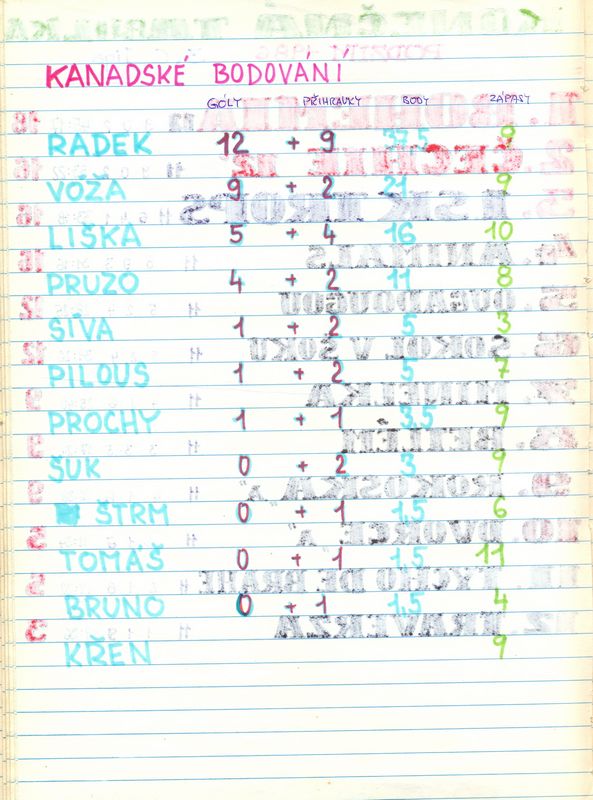 KANADSKÉ BODOVANI
GÓLY PŘIHRÁVKY BODY ZÁPASY
RADEK 12 + 9 37,5 9
VÓŽA 9 + 2 21 9
LIŠKA 5 + 4 16 10
PRUZO 4 + 2 11 8
SÍVA 1 + 2 5 3
PILOUS 1 + 2 5 7
PROCHY 1 + 1 3,5 9
ŠUK 0 + 2 3 9
ŠTRM 0 + 1 1,5 6
TOMÁŠ 0 + 1 1,5 11
BRUNO 0 + 1 1,5 4
KŘEN 9